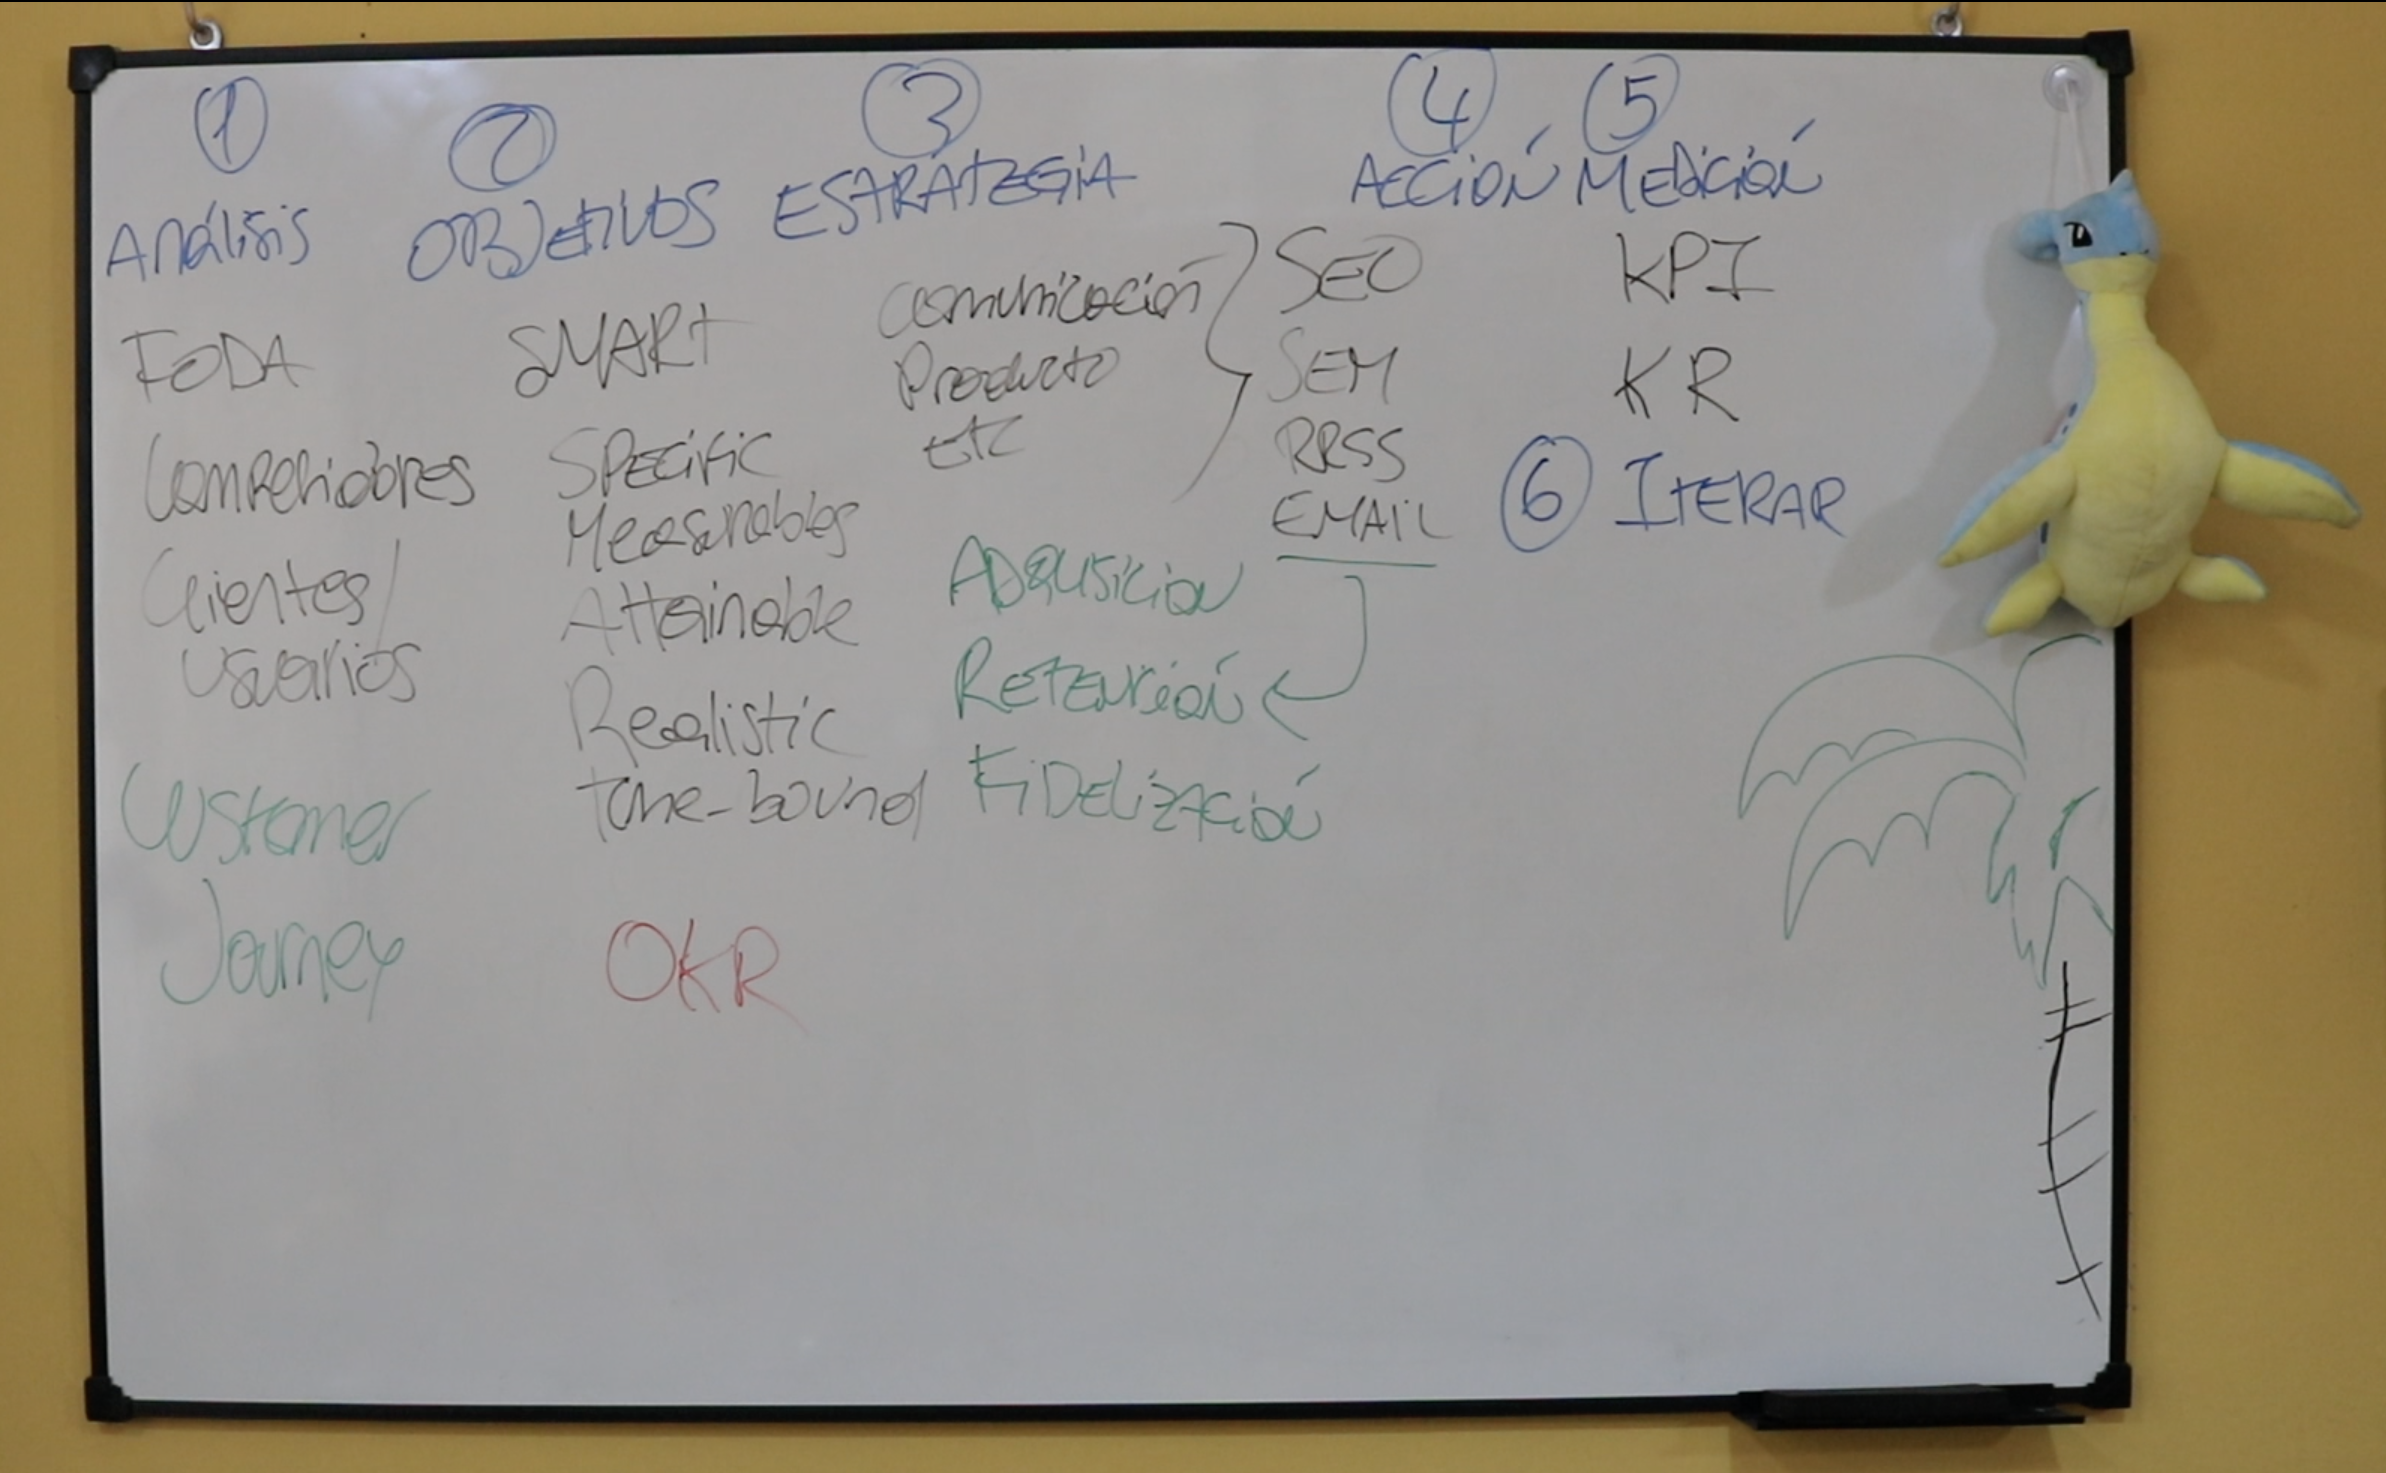 1
Análisis
FODA
Competidores
Clientes/
Usuarios
Customer
Journey
2
OBJETIVOS
SMART
SPECIFIC
Measurables
Attainable
Realistic
time-bound
OKR
3
ESTRATEGIA
Comunicación
Producto
Etc
ADQUISICION
RETENSIÓN
FIDELIZACIÓN
4
ACCIÓN
SEO
SEM
RRSS
EMAIL
5
MEDICIÓN
KPI
KR
6 ITERAR